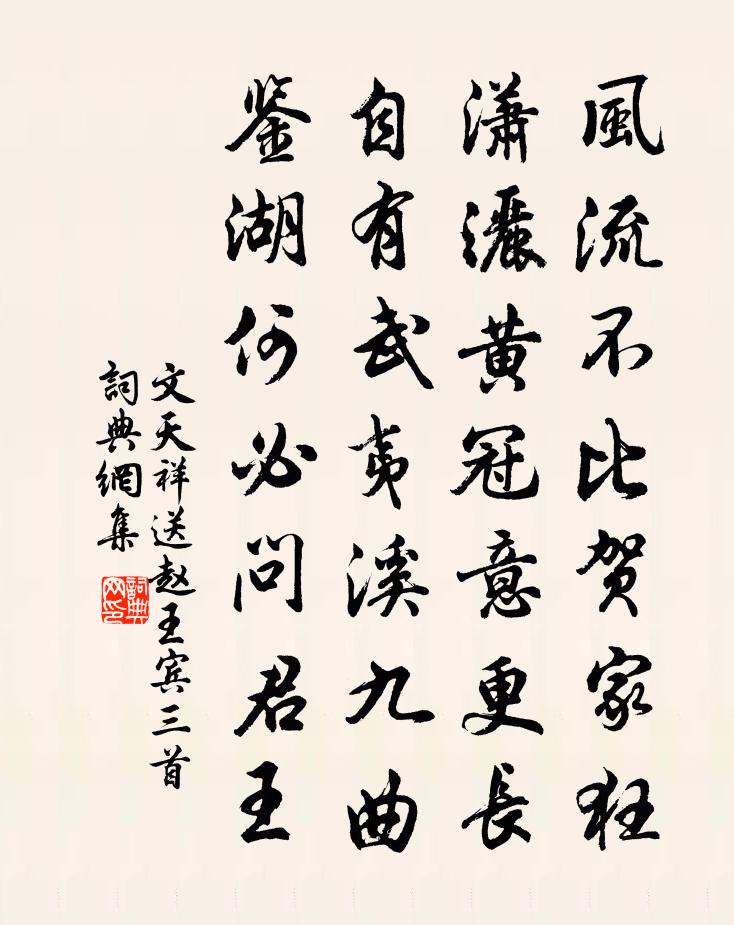 風流不比贺家狂
瀟灑黃冠意更長
自有武夷溪九曲
鉴湖何必問君王
文天祥送赵王宾三首
詞典網集
詞典網印